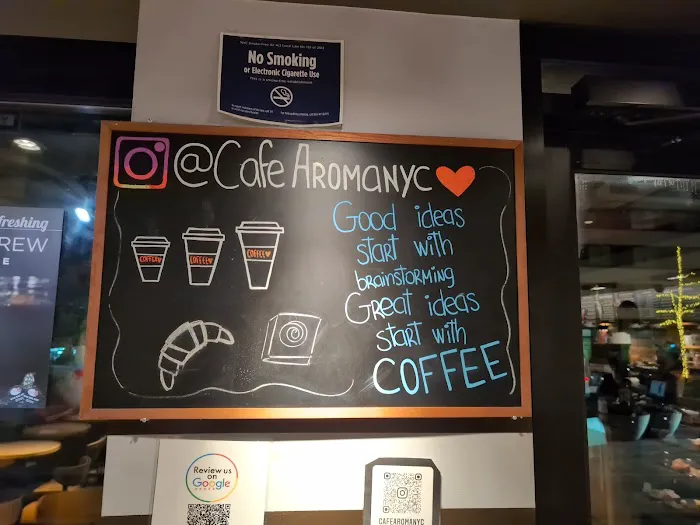 No Smoking
or Electronic Cigarette Use
@Cafe AROMANYC
Good ideas
start with
brainstorming
Great ideas
start with
COFFEE
COFFEE
COFFEE
COFFEE
freshing
REW
E
Review us
on
Google
CAFEAROMANYC